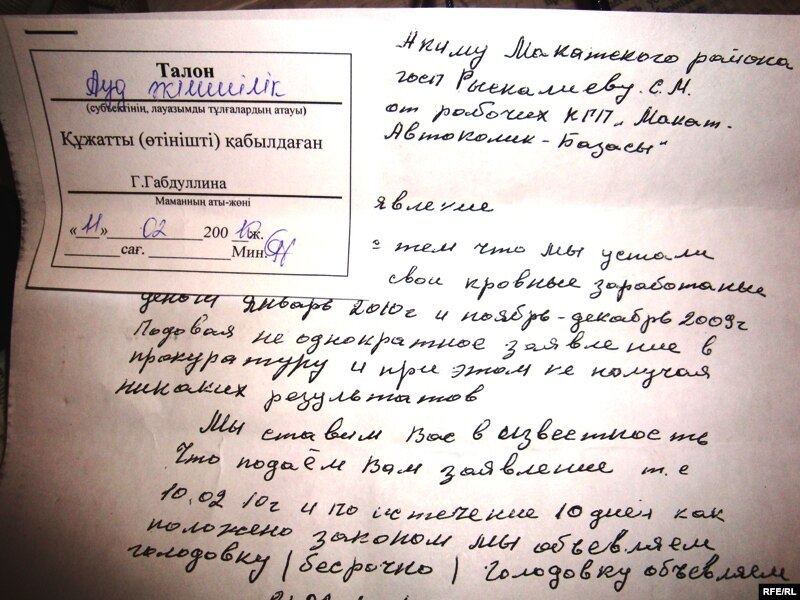 Талон
Ауд жішшілік
(субъектінің, лауазымды тұлғалардың атауы)
Құжатты (өтінішті) қабылдаған
Г.Габдуллина
Маманның аты-жөні
«11» 02 200 10ж.
сағ. Мин.
Акиму Макатского района
госп Рыскалиеву. С.М.
от рабочих КГП „Макат.
Автоколик - Базасы"
явление
с тем что мы устали
свои кровные заработаные
деньги январь 2010г и ноябрь-декабрь 2009г
Подовая не однократное заявление в
прокуратуру и при этом не получая
никаких результатов
Мы ставим Вас в известность
Что подаём Вам заявление т.е
10.02 10г и по истечение 10 дней как
положено законом мы объевляем
голодовку / бесрочно / голодовку объевляем
RFE/RL